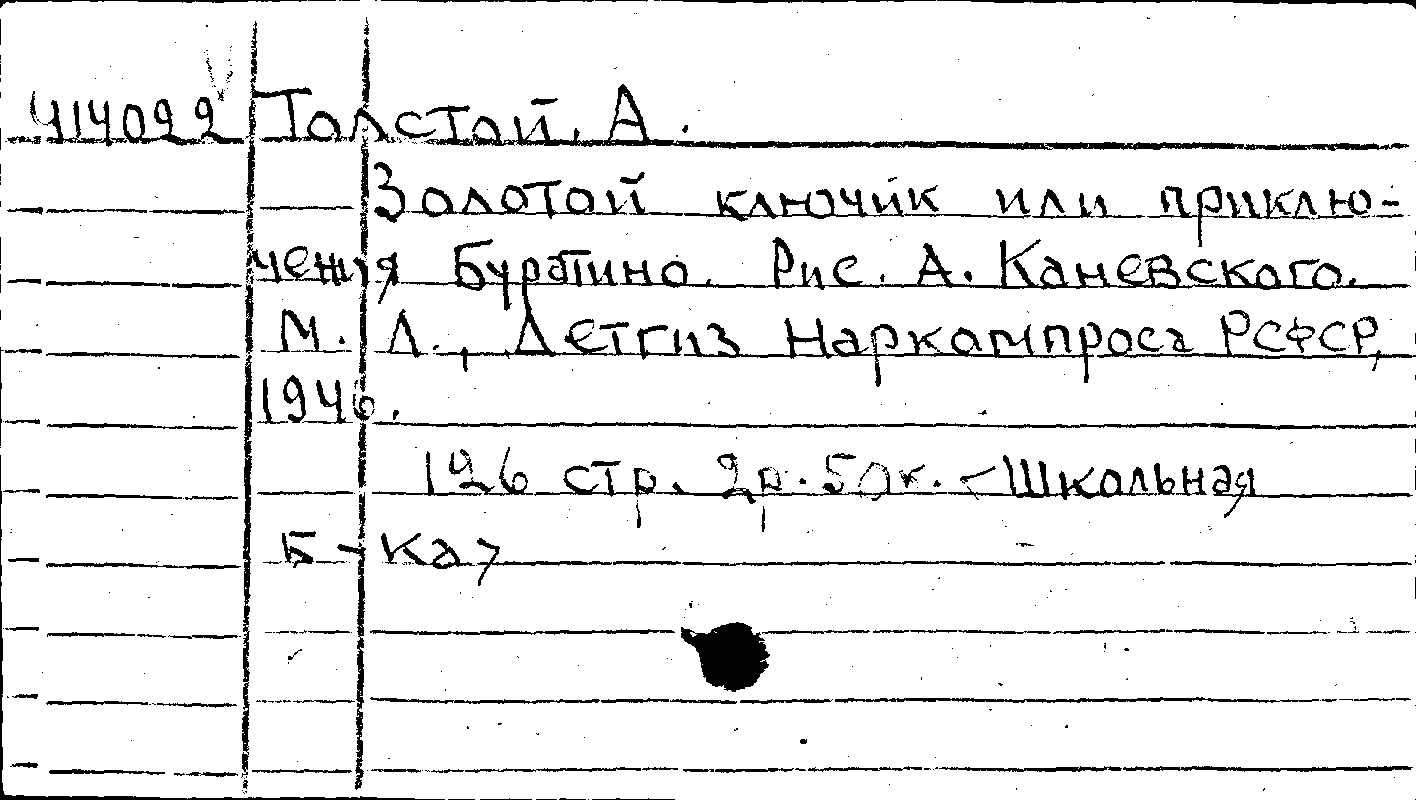 414022 Толстой, А.
Золотой ключик или приклю-
чения Буратино. Рис. А. Каневского.
М. Л., Детгиз Наркомпроса РСФСР,
1946.
126 стр. 2р. 50к. <Школьная
б-ка>